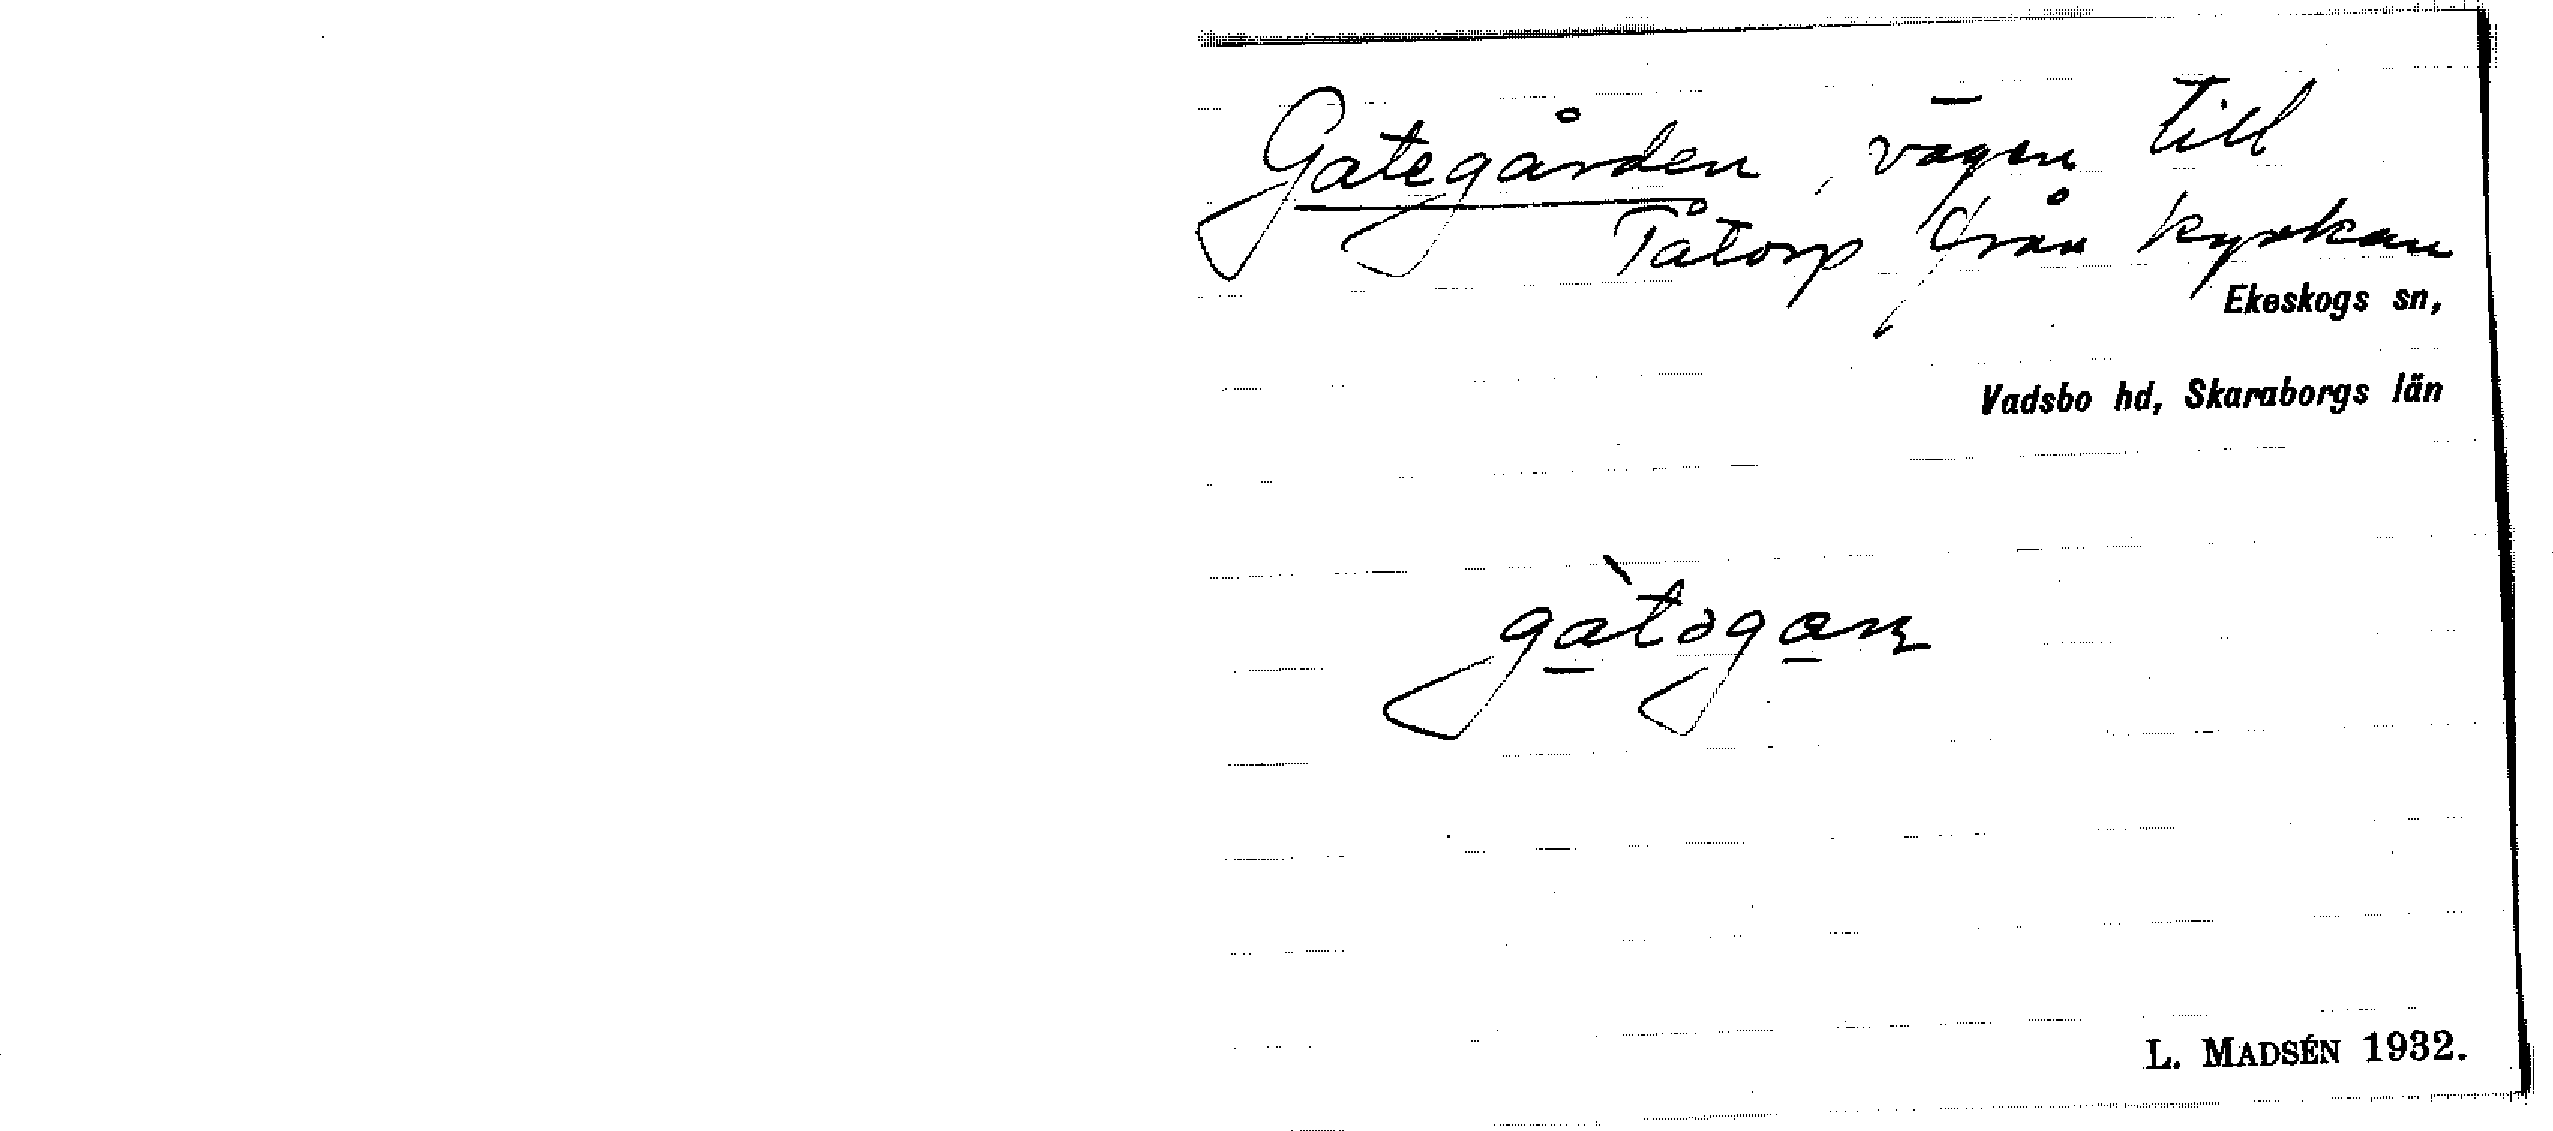 Gategården, vägen till
Tåtorp från kyrkan
Ekeskogs sn,
Vadsbo hd, Skaraborgs län
L. MADSÉN 1932.